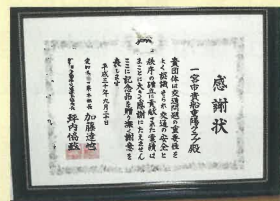 感謝状
一宮市貴船重陽クラブ殿
貴団体は交通問題の重要性を
よく認識せられ交通の安全と
秩序の確立に貢献された業績は
まことに大きく感謝にたえません
ここに記念品を贈り深く謝意を
表します
平成三十年九月二十日
加藤達也
坪内